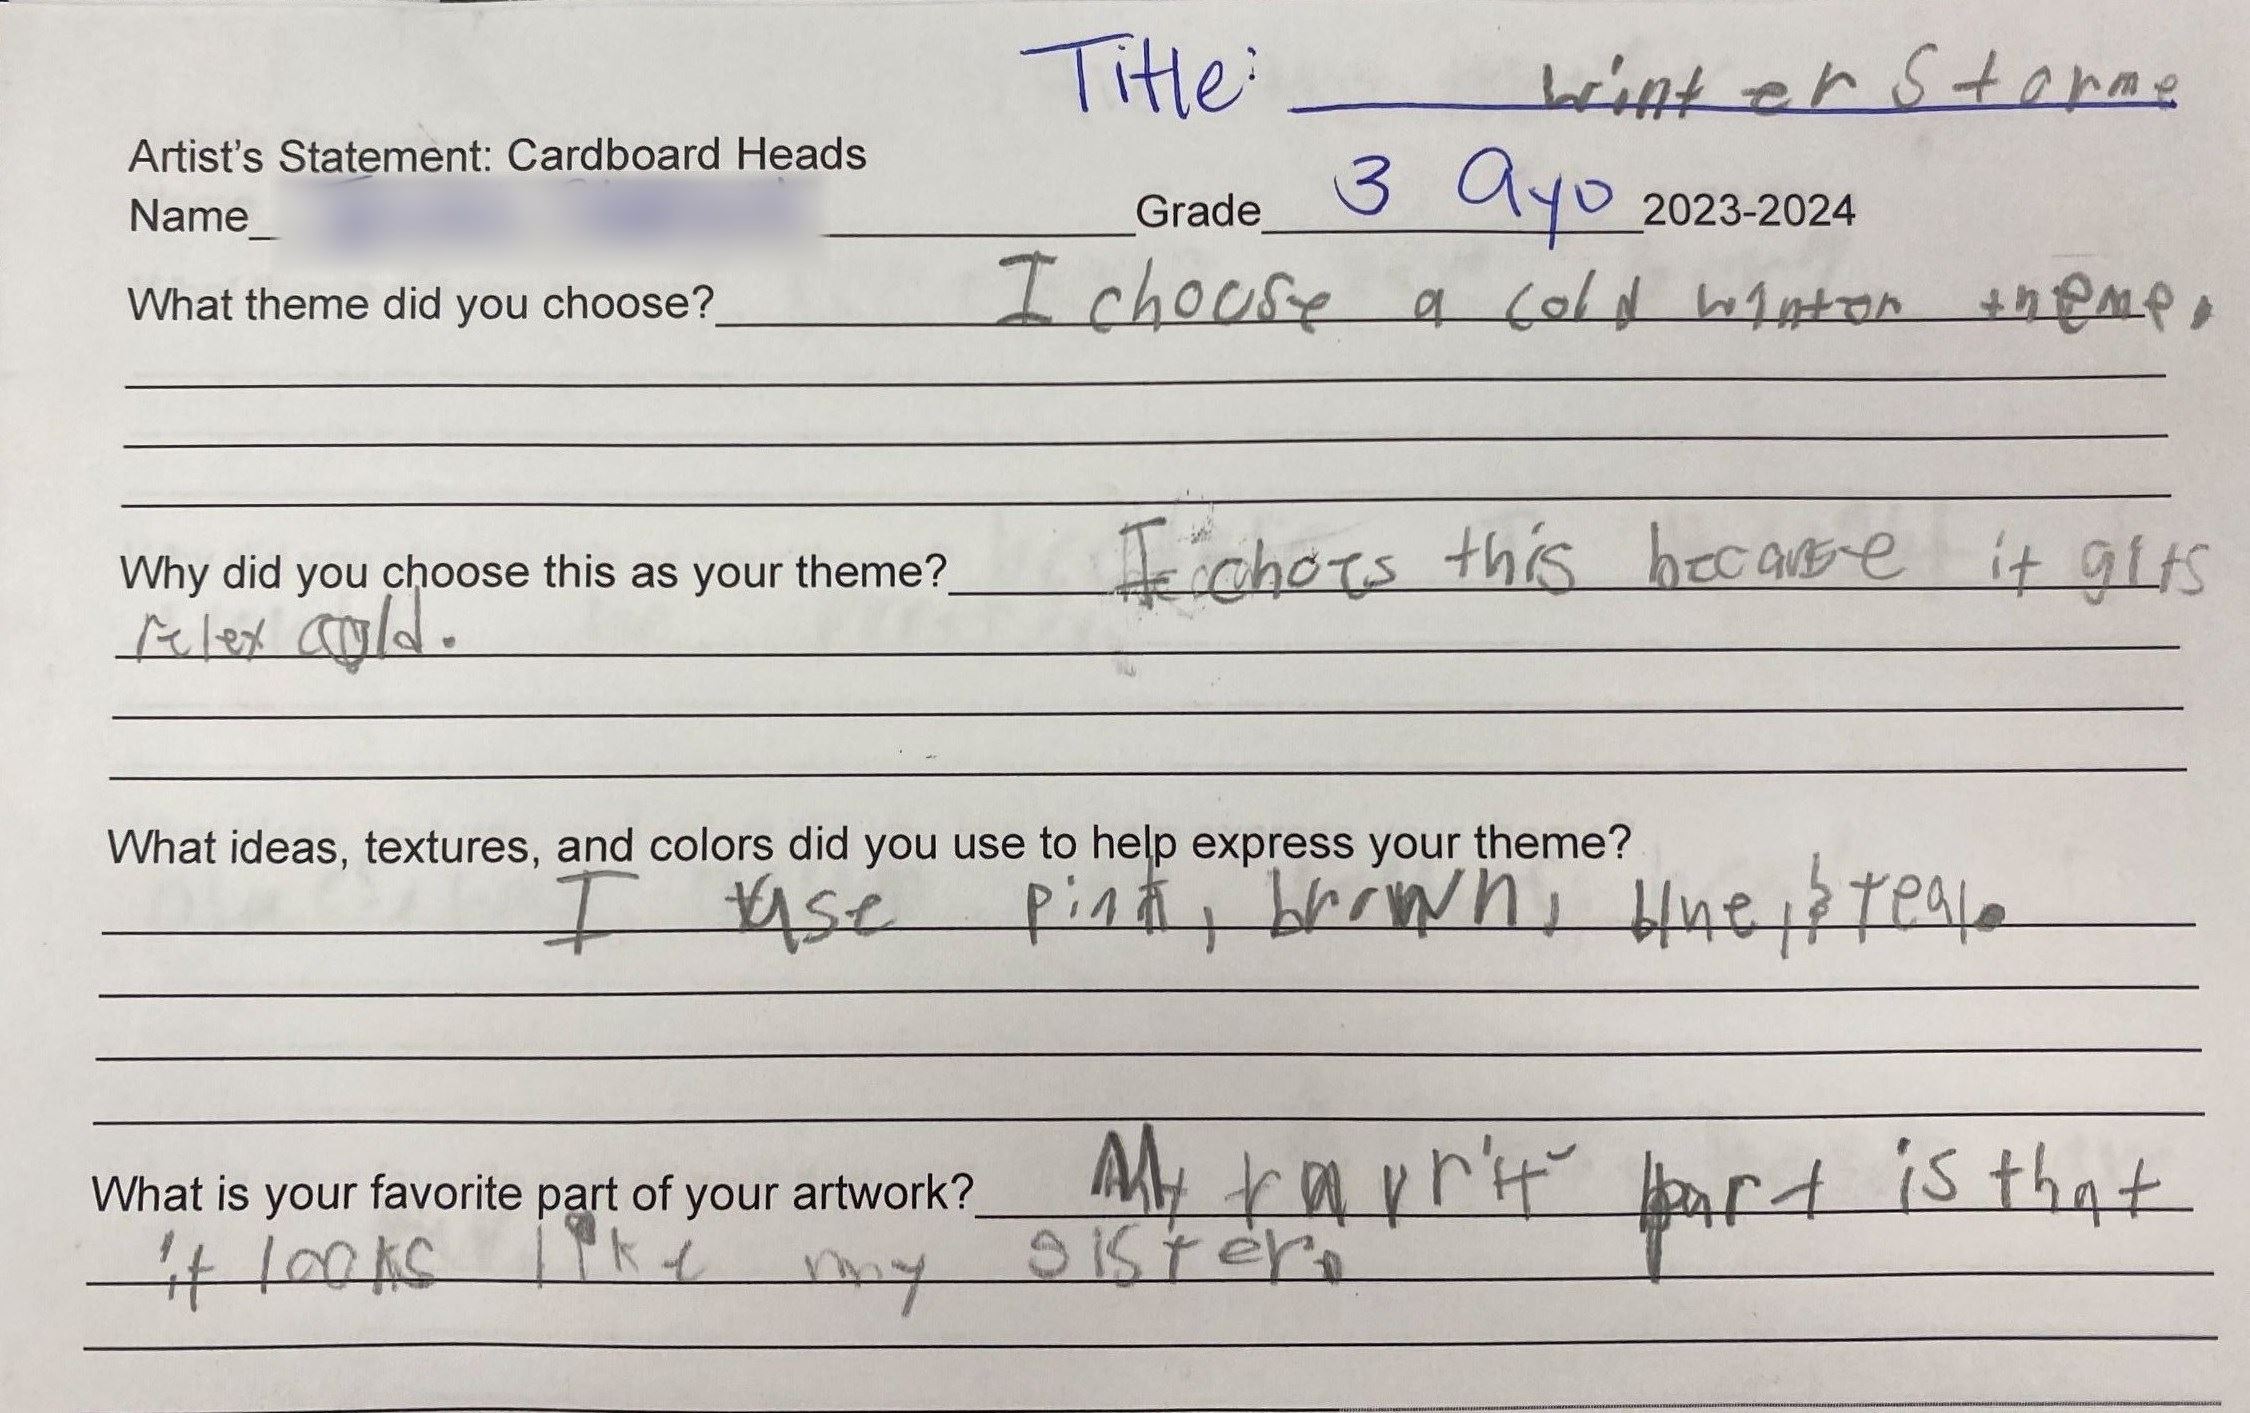 Title: winter Storme
Artist's Statement: Cardboard Heads
Name_ Grade 3 Ayo 2023-2024
What theme did you choose? I chouse a cold winter theme.
Why did you choose this as your theme? I choes this because it gits
relex cold.
What ideas, textures, and colors did you use to help express your theme?
I use pink, brown, blue, & teal.
What is your favorite part of your artwork? My favrit part is that
it looks like my sister.